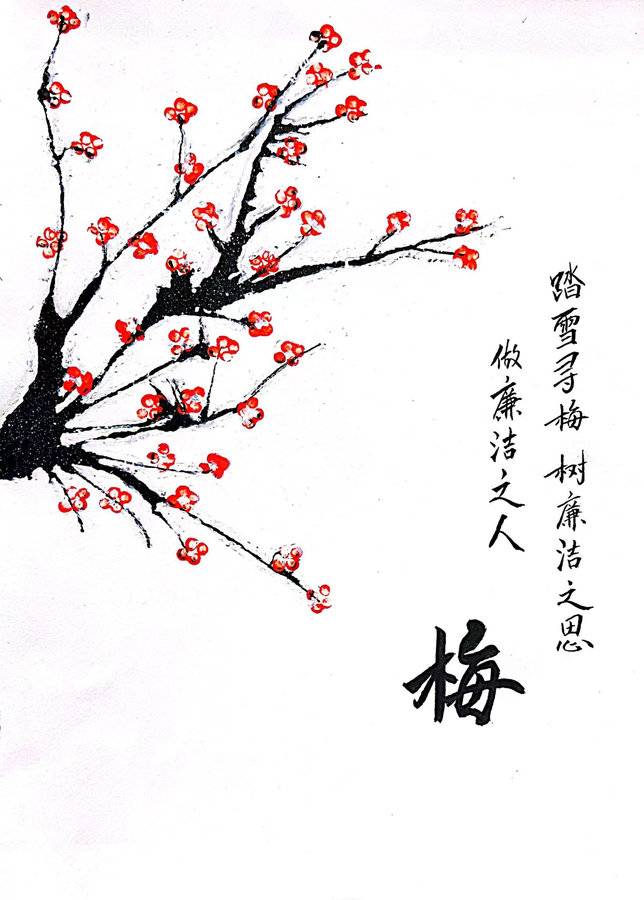 踏雪寻梅 树廉洁之思
做廉洁之人
梅